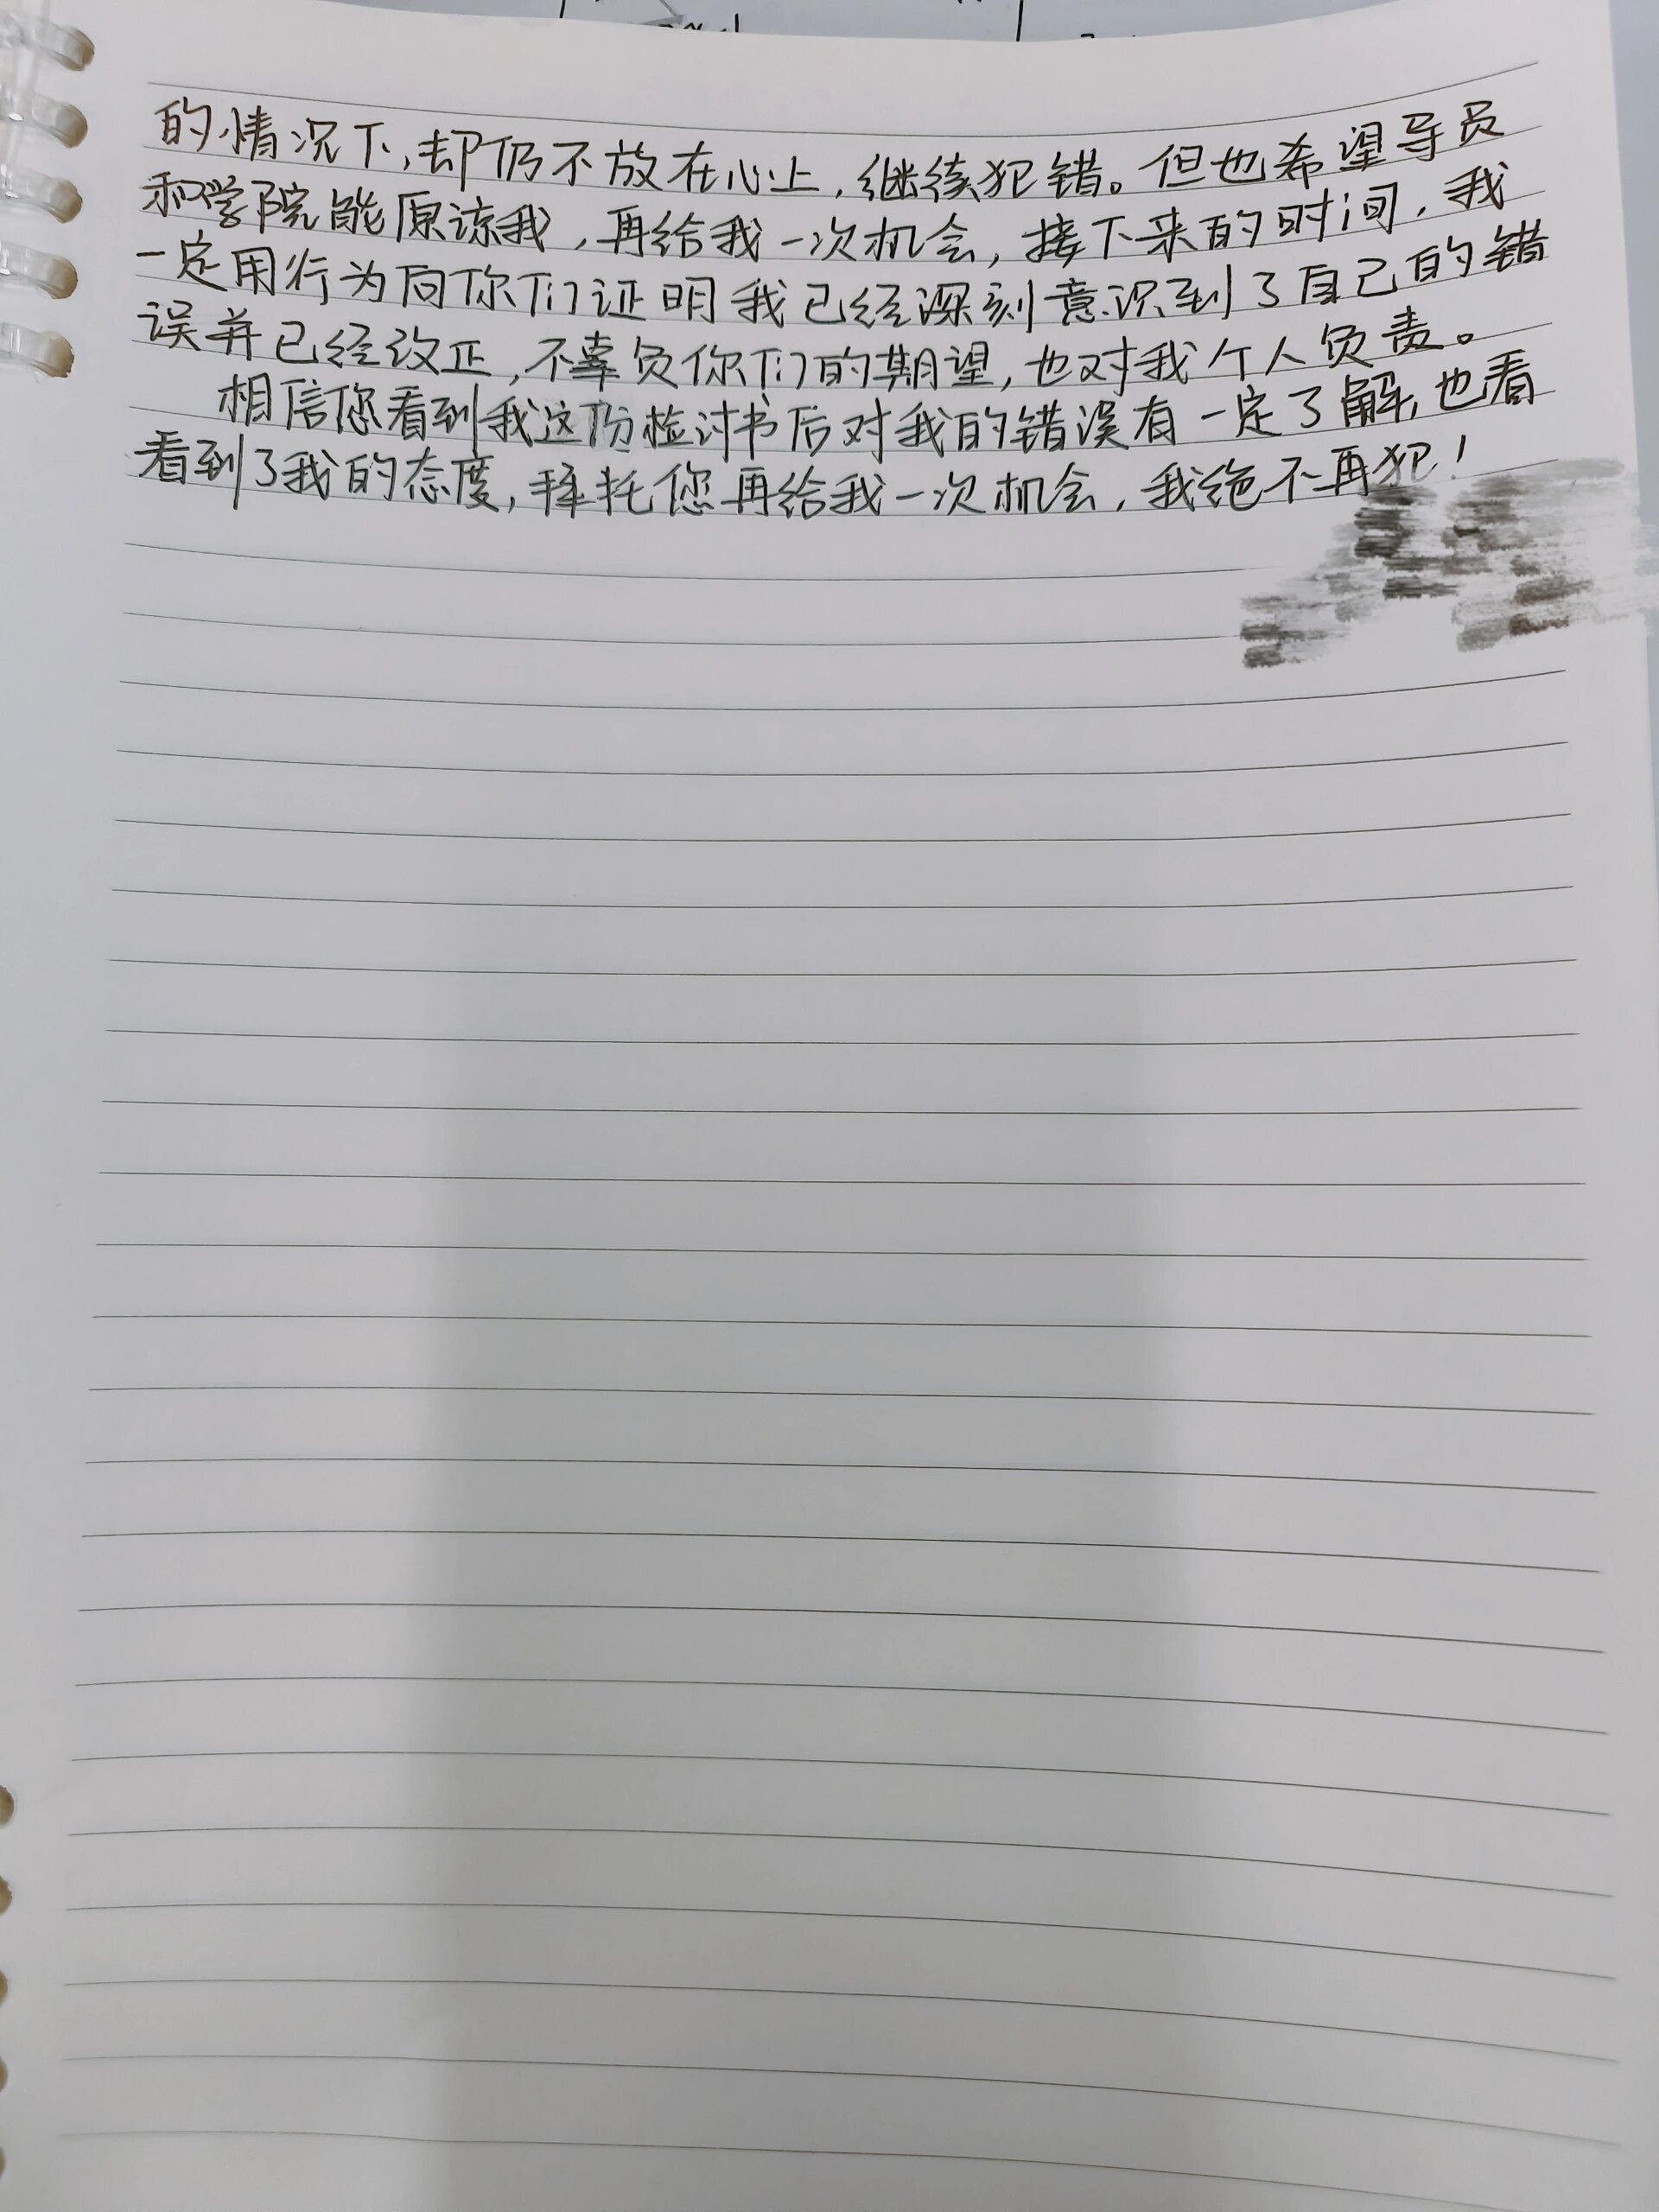 的情况下，却仍不放在心上，继续犯错。但也希望导员
和学院能原谅我，再给我一次机会，接下来的时间，我
一定用行为向你们证明我已经深刻意识到了自己的错
误并已经改正，不辜负你们的期望，也对我个人负责。
相信您看到我这份检讨书后对我的错误有一定了解，也看
看到了我的态度，拜托您再给我一次机会，我绝不再犯！